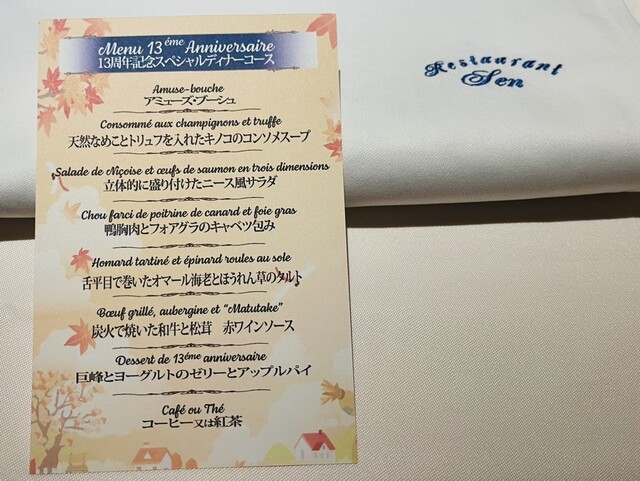 Menu 13éme Anniversaire
13周年記念スペシャルディナーコース
Amuse-bouche
アミューズ・ブーシュ
Consommé aux champignons et truffe
天然なめことトリュフを入れたキノコのコンソメスープ
Salade de Niçoise et œufs de saumon en trois dimensions
立体的に盛り付けたニース風サラダ
Chou farci de poitrine de canard et foie gras
鴨胸肉とフォアグラのキャベツ包み
Homard tartiné et épinard roules au sole
舌平目で巻いたオマール海老とほうれん草のタルト
Bœuf grillé, aubergine et “Matutake”
炭火で焼いた和牛と松茸 赤ワインソース
Dessert de 13éme anniversaire
巨峰とヨーグルトのゼリーとアップルパイ
Café ou Thé
コーヒー又は紅茶
Restaurant
Sen